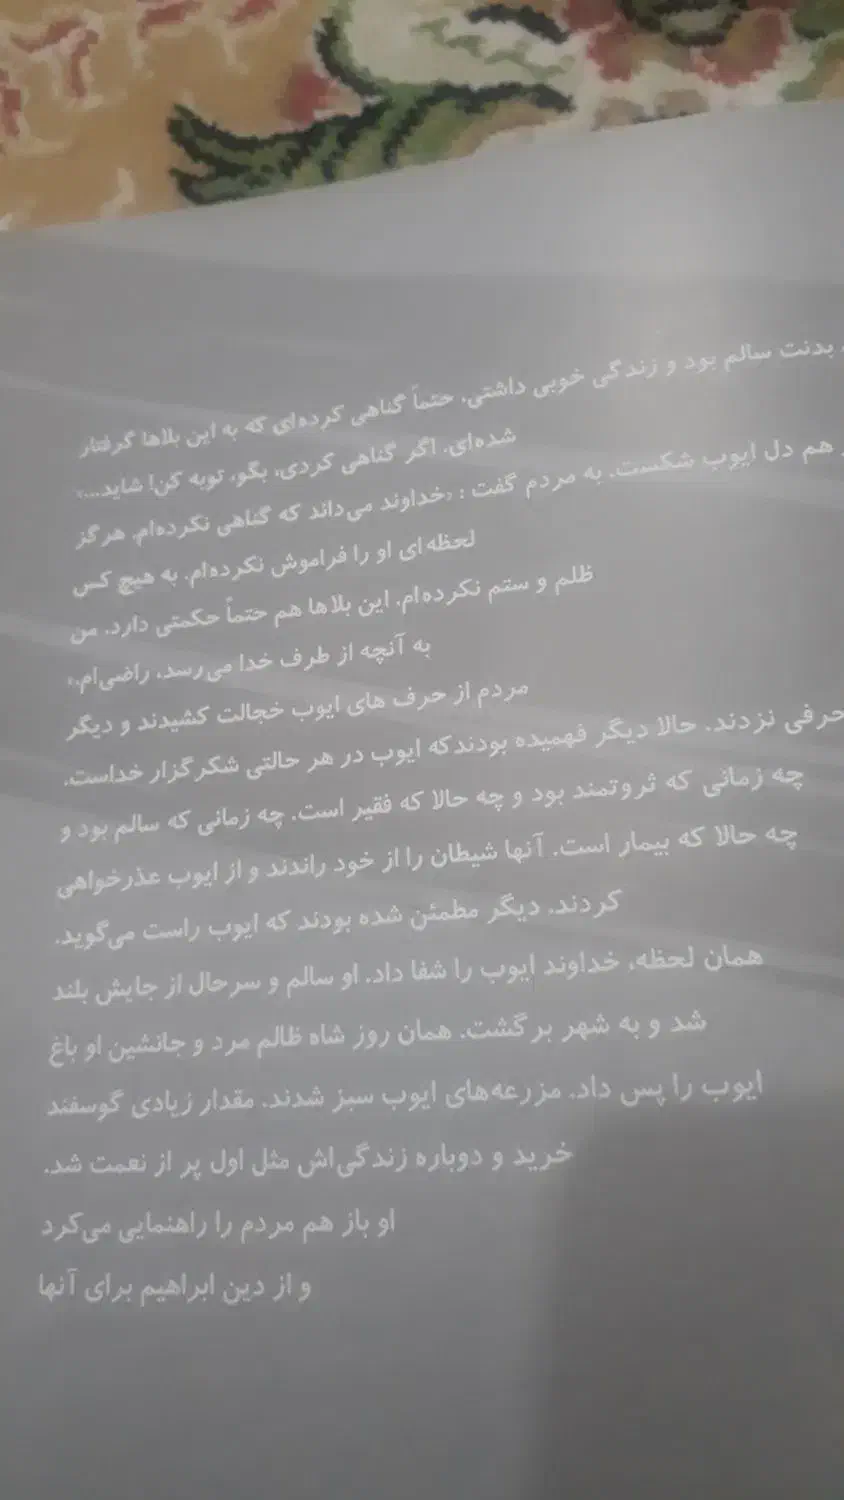 بدنت سالم بود و زندگی خوبی داشتی، حتماً گناهی کرده‌ای که به این بلاها گرفتار
شده‌ای. اگر گناهی کردی، بگو، توبه کن! شاید...»
هم دل ایوب شکست. به مردم گفت : «خداوند می‌داند که گناهی نکرده‌ام. هرگز
لحظه‌ای او را فراموش نکرده‌ام. به هیچ کس
ظلم و ستم نکرده‌ام. این بلاها هم حتماً حکمتی دارد. من
به آنچه از طرف خدا می‌رسد، راضی‌ام.»
مردم از حرف های ایوب خجالت کشیدند و دیگر
حرفی نزدند. حالا دیگر فهمیده بودندکه ایوب در هر حالتی شکرگزار خداست.
چه زمانی که ثروتمند بود و چه حالا که فقیر است. چه زمانی که سالم بود و
چه حالا که بیمار است. آنها شیطان را از خود راندند و از ایوب عذرخواهی
کردند. دیگر مطمئن شده بودند که ایوب راست می‌گوید.
همان لحظه، خداوند ایوب را شفا داد. او سالم و سرحال از جایش بلند
شد و به شهر برگشت. همان روز شاه ظالم مرد و جانشین او باغ
ایوب را پس داد. مزرعه‌های ایوب سبز شدند. مقدار زیادی گوسفند
خرید و دوباره زندگی‌اش مثل اول پر از نعمت شد.
او باز هم مردم را راهنمایی می‌کرد
و از دین ابراهیم برای آنها